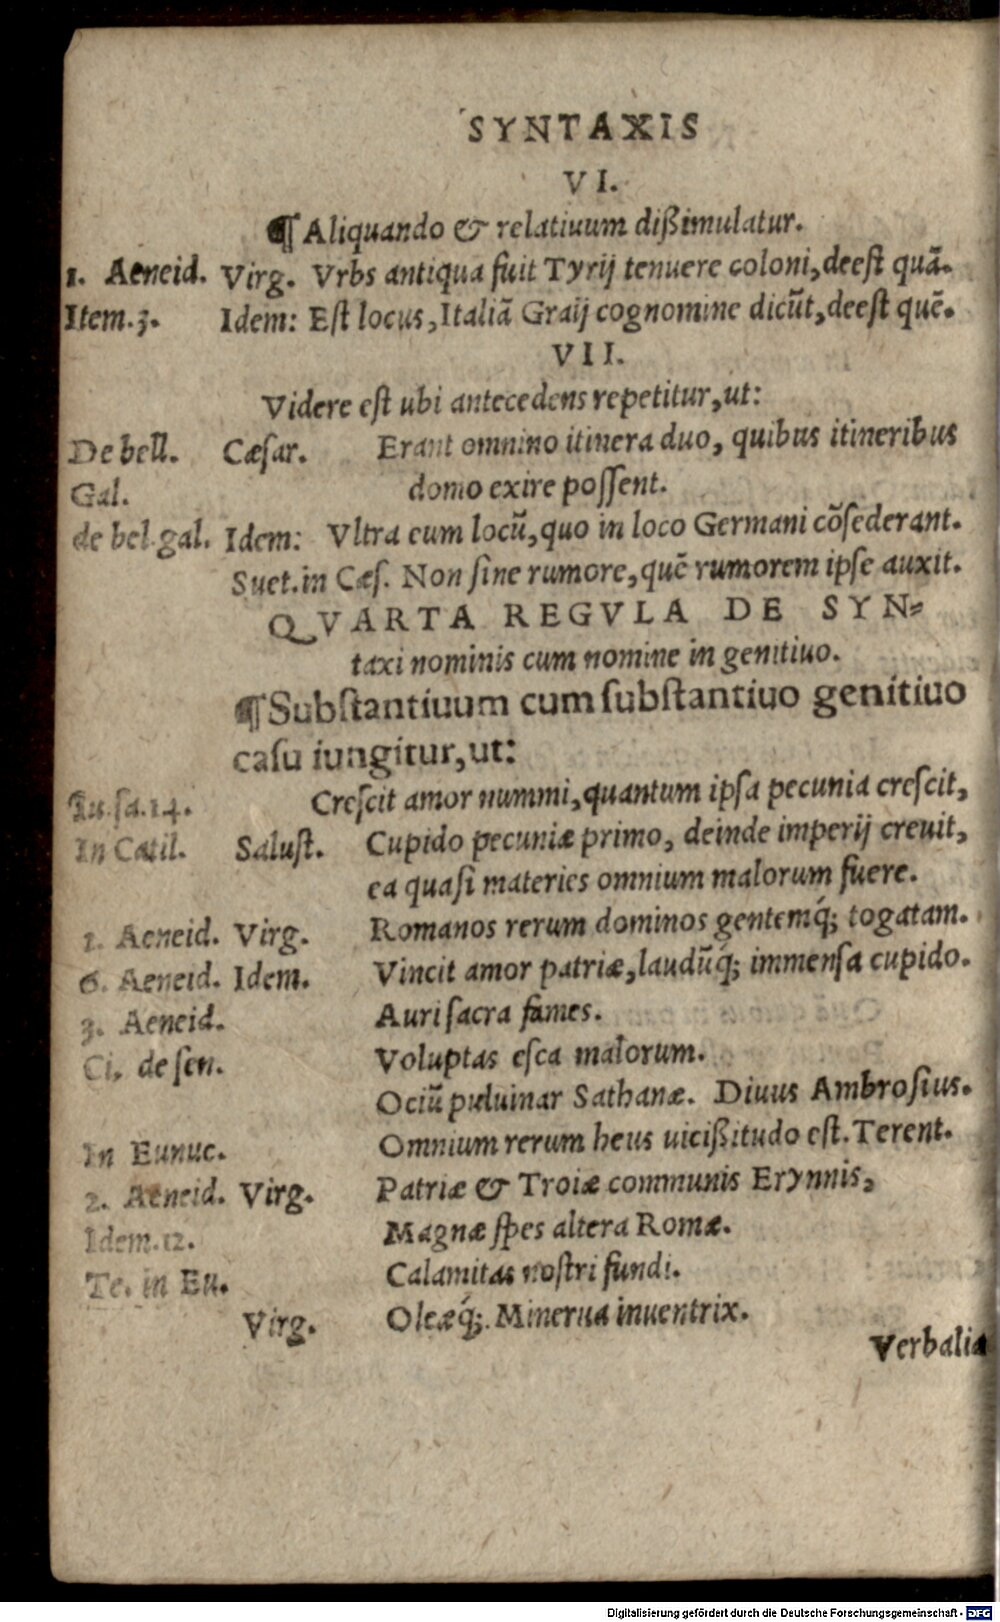 SYNTAXIS
VI.
¶Aliquando & relatiuum dißimulatur.
1. Aeneid. Virg. Vrbs antiqua fuit Tyrij tenuere coloni, deest quā.
Item.3. Idem: Est locus, Italiā Graij cognomine dicūt, deest quē.
VII.
Videre est ubi antecedens repetitur, ut:
De bell. Cæsar. Erant omnino itinera duo, quibus itineribus
Gal. domo exire possent.
de bel.gal. Idem: Vltra eum locū, quo in loco Germani cōsederant.
Suet. in Cæs. Non sine rumore, quē rumorem ipse auxit.
QVARTA REGVLA DE SYN-
taxi nominis cum nomine in genitiuo.
¶Substantiuum cum substantiuo genitiuo
casu iungitur, ut:
Iu. sa. 14. Crescit amor nummi, quantum ipsa pecunia crescit,
In Catil. Salust. Cupido pecuniæ primo, deinde imperij creuit,
ea quasi materies omnium malorum fuere.
1. Aeneid. Virg. Romanos rerum dominos gentemq́; togatam.
6. Aeneid. Idem. Vincit amor patriæ, laudūq́; immensa cupido.
3. Aeneid. Auri sacra fames.
Ci. de sen. Voluptas esca malorum.
Ociū puluinar Sathanæ. Diuus Ambrosius.
In Eunuc. Omnium rerum heus uicißitudo est. Terent.
2. Aeneid. Virg. Patriæ & Troiæ communis Erynnis,
Idem.12. Magnæ spes altera Romæ.
Te. in Eu. Calamitas nostri fundi.
Virg. Oleæq́;. Minerua inuentrix.
Verbalia
Digitalisierung gefördert durch die Deutsche Forschungsgemeinschaft - DFG